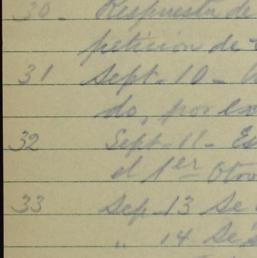 30- Respuesta de
petición de
31 Sept. 10-
do, por ex
32 Sept. 11- Es
el 1er Otro
33 Sep. 13 Se
" 14 Se